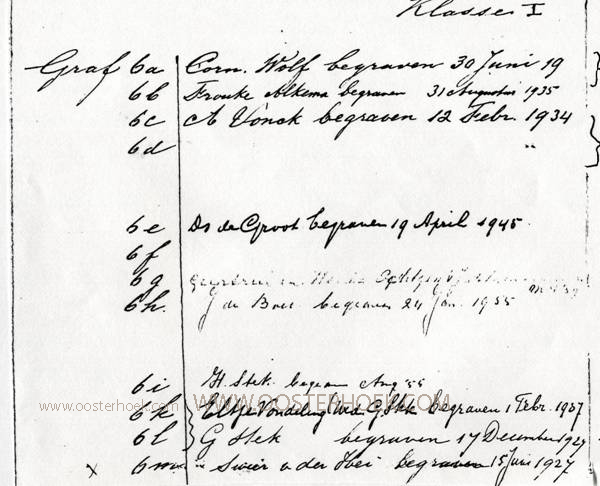 Klasse I
Graf 6a Corn. Wolf begraven 30 Juni 19
6b Frouke Alkema begraven 31 Augustus 1935
6c A Vonck begraven 12 Febr. 1934
6d "
6e Ds de Groot begraven 19 April 1945.
6f
6g
6h. J de Boer begraven 24 Jan. 1955
6i H. Stek begraven Aug '55
www.oosterhoek.com
WWW.OOSTERHOEK.COM
6k Eltje Vondeling Wed G. Stek begraven 1 Febr. 1937
6l G Stek begraven 17 December 1927
x 6m Swier v der Hei begraven 15 Juni 1927